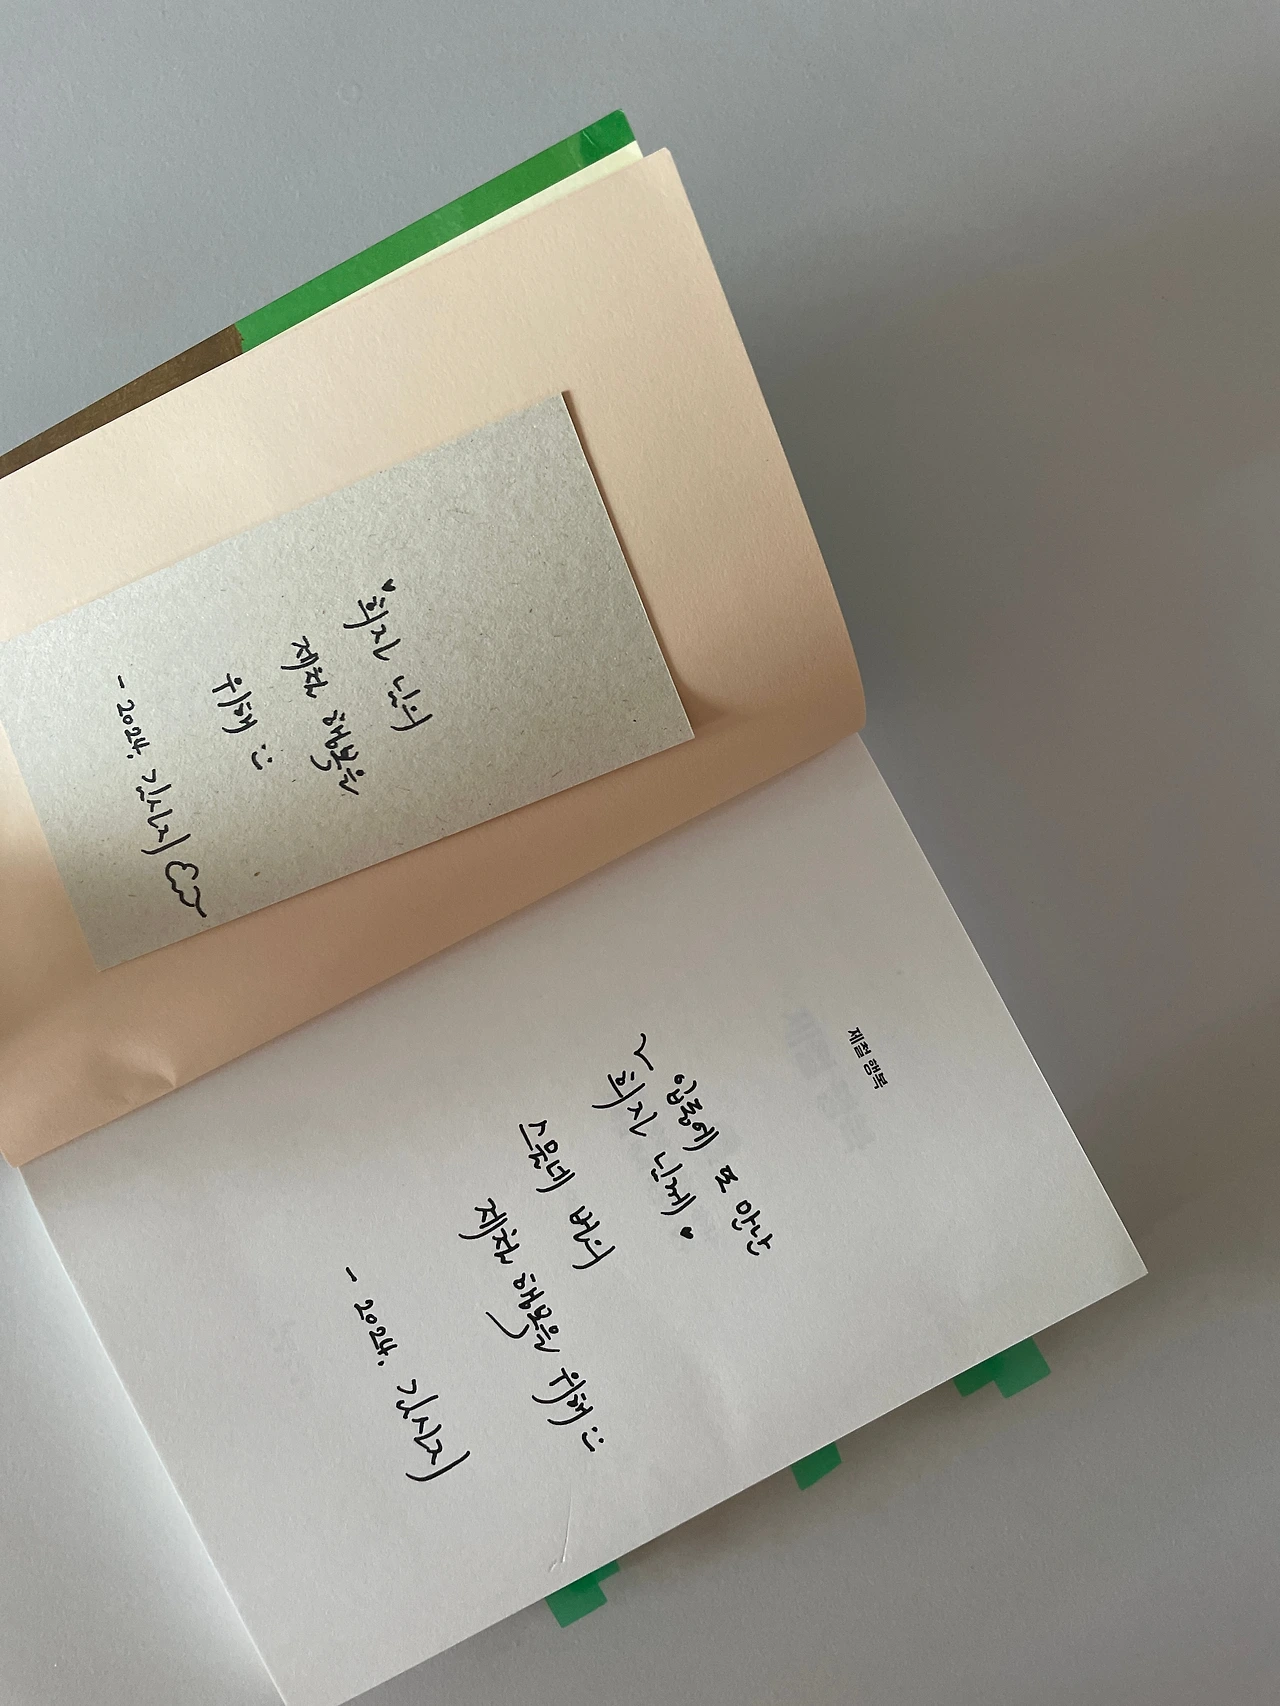 ♥희지 님의
제철 행복을
위해 :)
- 2024. 김신지
제철 행복
입동에 또 만난
~ 희지 님께 ♥
스물네 번의
제철 행복을 위해 :)
- 2024. 김신지